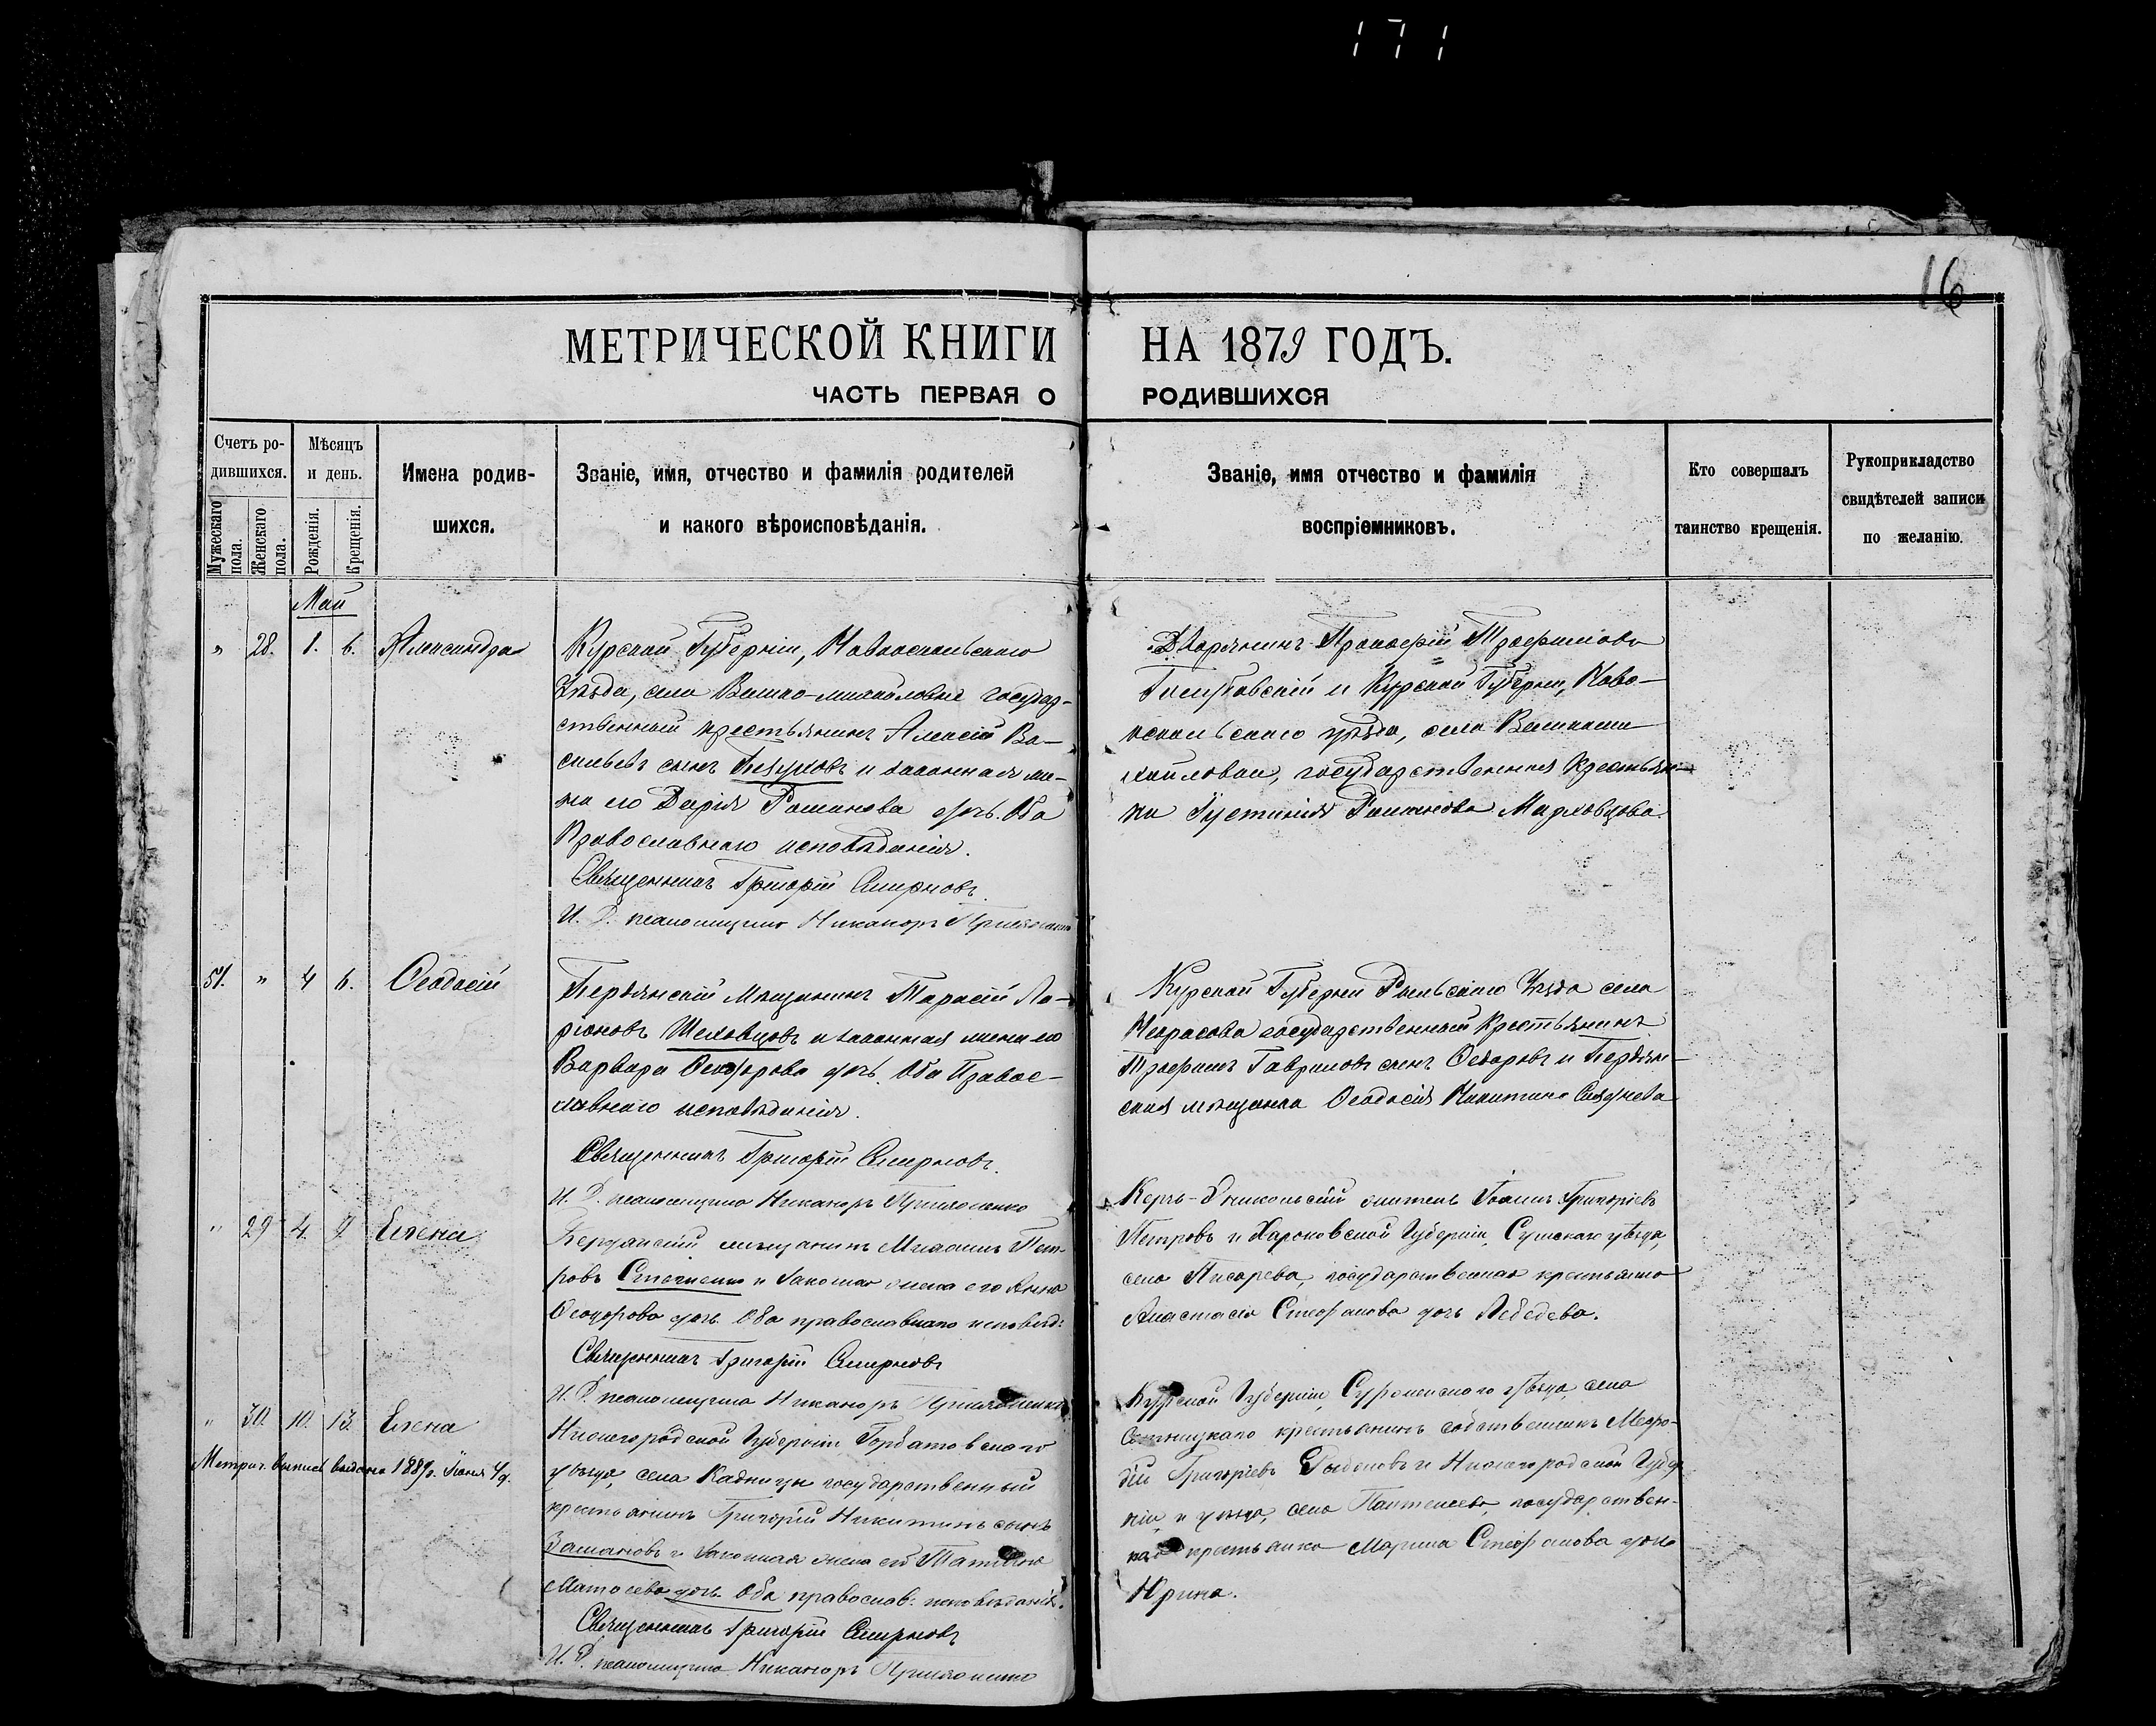 171
16
МЕТРИЧЕСКОЙ КНИГИ НА 1879 ГОДЪ.
ЧАСТЬ ПЕРВАЯ О РОДИВШИХСЯ
Счетъ ро-
дившихся.
Мужескаго пола.
Женскаго пола.
Мѣсяцъ
и день.
Рожденія.
Крещенія.
Имена родив-
шихся.
Званіе, имя, отчество и фамилія родителей
и какого вѣроисповѣданія.
Званіе, имя отчество и фамилія
воспріемниковъ.
Кто совершалъ
таинство крещенія.
Рукоприкладство
свидѣтелей записи
по желанію.
Май
" 28. 1. 6. Александра
Курской Губерніи, Новооскольскаго
Уѣзда, села государ-
ственный крестьянинъ Алексій Ва-
сильевъ сынъ и законная же-
на его Дарія Романова дочь. Оба
Православнаго исповѣданія.
Священникъ Григорій Смирновъ.
И. Д. псаломщика Никаноръ
Дворянинъ Прокофій Трофимовъ
и Курской Губерніи, Ново-
оскольскаго уѣзда, села
хайловки, государственная крестьян-
ка Іустинія Романова
51. " 4 6. Ѳеодосій
Бердянскій Мѣщанинъ Тарасій Ла-
ріоновъ Шеховцовъ и законная жена его
Варвара Ѳеодорова дочь. Оба Правос-
лавнаго исповѣданія.
Священникъ Григорій Смирновъ.
И. Д. псаломщика Никаноръ
Курской Губерніи Рыльскаго Уѣзда села
Некрасова государственный Крестьянинъ
Трофимъ Гавриловъ сынъ Ѳедоровъ и Бердян-
ская мѣщанка Ѳеодосія Никитина
" 29 4. 9. Елена
Бердянскій мѣщанинъ Михаилъ Пет-
ровъ и законная жена его Анна
Ѳеодорова дочь. Оба православнаго исповѣд:
Священникъ Григорій Смирновъ
И. Д. псаломщика Никаноръ
Керчь-Эникольскій житель Іоаннъ Григоріевъ
Петровъ и Харьковской Губерніи, Сумскаго уѣзда,
села Писарева, государственная крестьянка
Анастасія Стефанова дочь Лебедева.
" 30. 10. 13. Елена
Метрич. выпись выдана 1889г. Іюня 4/9.
Нижегородской Губерніи Горбатовскаго
уѣзда, села Кадницы государственный
крестьянинъ Григорій Никитинъ сынъ
и законная жена его Татіана
дочь. Оба православ: исповѣданія.
Священникъ Григорій Смирновъ
И. Д. псаломщика Никаноръ
Курской Губерніи, уѣзда, села
крестьянинъ собственникъ Меѳо-
дій Григоріевъ и Нижегородской Губер-
ніи, и уѣзда, села государствен-
ная крестьянка Марина Стефанова дочь